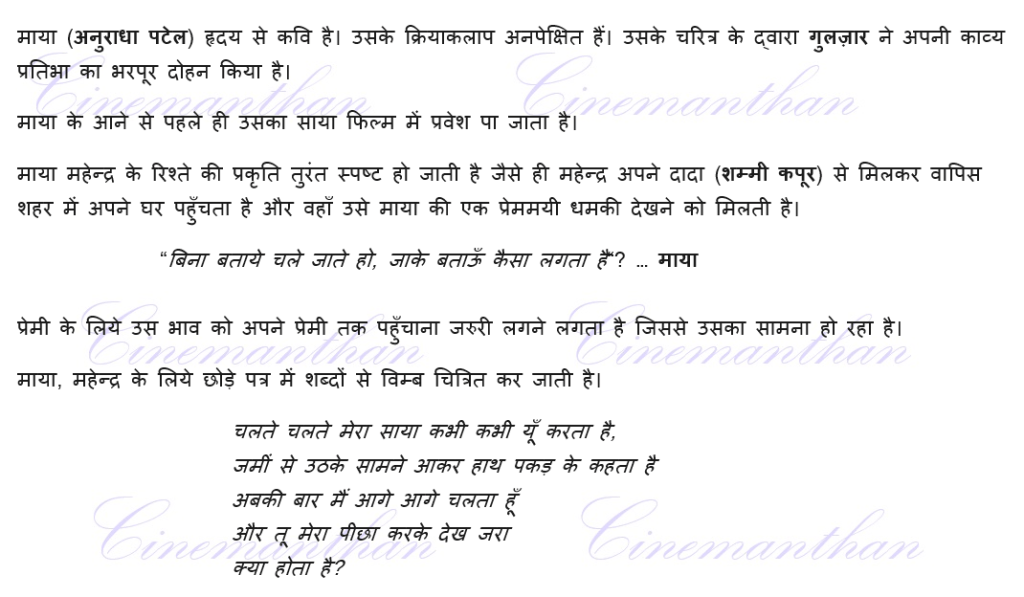 माया (अनुराधा पटेल) हृदय से कवि है। उसके क्रियाकलाप अनपेक्षित हैं। उसके चरित्र के द्वारा गुलज़ार ने अपनी काव्य
प्रतिभा का भरपूर दोहन किया है।
Cinemanthan Cinemanthan
माया के आने से पहले ही उसका साया फिल्म में प्रवेश पा जाता है।
माया महेन्द्र के रिश्ते की प्रकृति तुरंत स्पष्ट हो जाती है जैसे ही महेन्द्र अपने दादा (शम्मी कपूर) से मिलकर वापिस
शहर में अपने घर पहुँचता है और वहाँ उसे माया की एक प्रेममयी धमकी देखने को मिलती है।
“बिना बताये चले जाते हो, जाके बताऊँ कैसा लगता है“? … माया
प्रेमी के लिये उस भाव को अपने प्रेमी तक पहुँचाना जरुरी लगने लगता है जिससे उसका सामना हो रहा है।
Cinemanthan Cinemanthan
माया, महेन्द्र के लिये छोड़े पत्र में शब्दों से विम्ब चित्रित कर जाती है।
चलते चलते मेरा साया कभी कभी यूँ करता है,
जमीं से उठके सामने आकर हाथ पकड़ के कहता है
अबकी बार मैं आगे आगे चलता हूँ
और तू मेरा पीछा करके देख जरा
Cinemanthan Cinemanthan
क्या होता है?